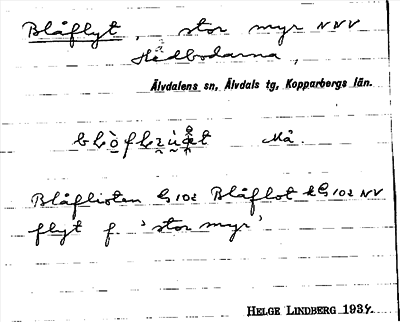 Blåflyt, stor myr NNV
Hedbodarna,
Älvdalens sn, Älvdals tg, Kopparbergs län.
Må.
Blåflioten G 102 Blåflot G 102 NV
flyt f. 'stor myr'
HELGE LINDBERG 1937.